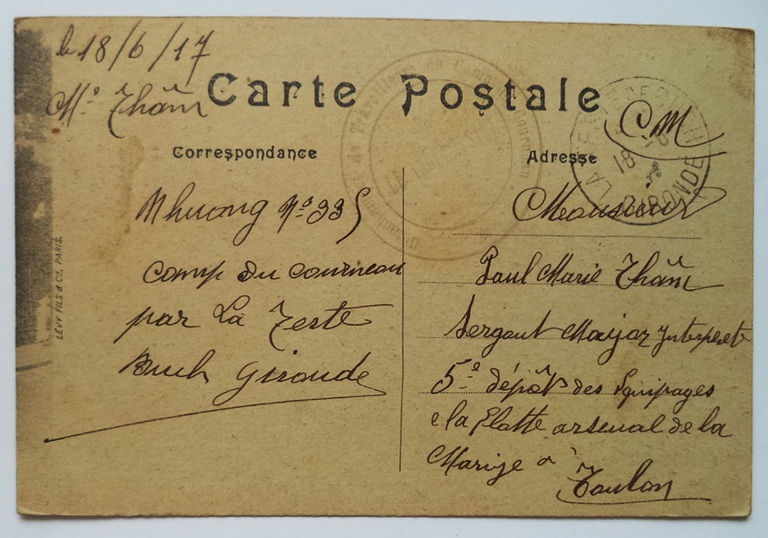 le 18/6/17
Mr Thâm
Carte Postale
CM
Correspondance
Adresse
Nhuong No 335
camp du courneau
par La Teste
Buch Gironde
Monsieur
Paul Marie Thâm
Sergent Major Interprete
5e dépôt des Equipages
de la Flotte arsenal de la
Marine à
Toulon
LÉVY FILS & Cie, PARIS.
LA TESTE DE BUCH
18 -6
GIRONDE